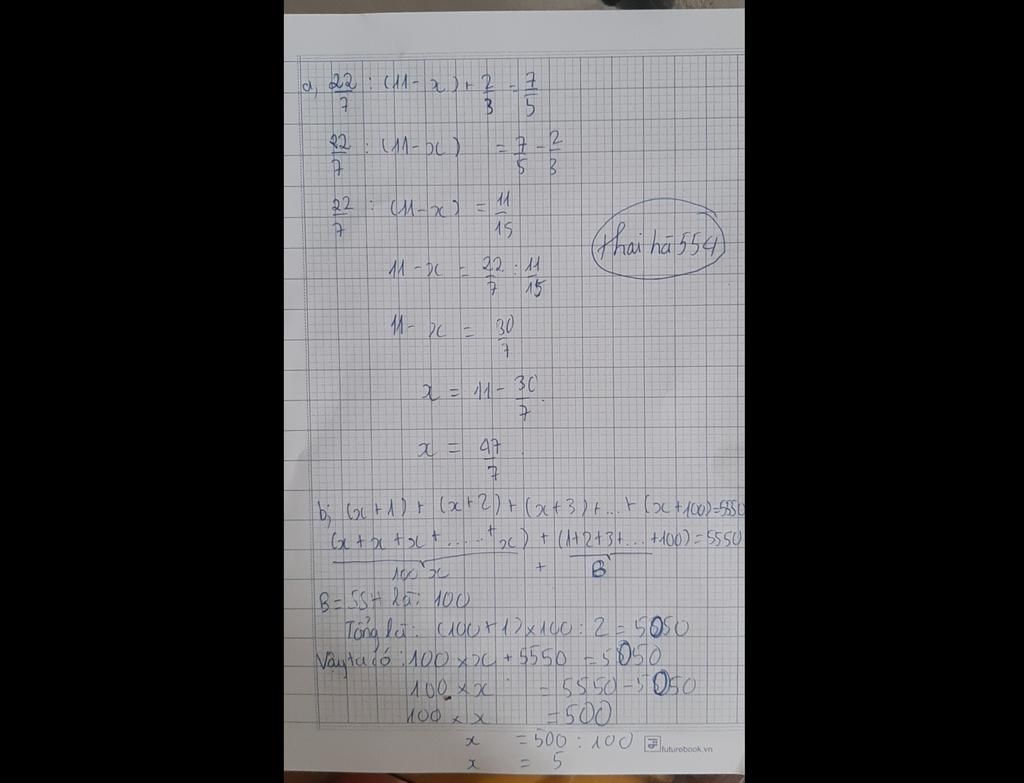 a, 22/7 : (11 - x) + 2/3 = 7/5
22/7 : (11 - x) = 7/5 - 2/3
22/7 : (11 - x) = 11/15
thai hà 554
11 - x = 22/7 : 11/15
11 - x = 30/7
x = 11 - 30/7
x = 47/7
b; (x + 1) + (x + 2) + (x + 3) + ... + (x + 100) = 5550
(x + x + x + ..... + x) + (1 + 2 + 3 + ... + 100) = 5550
100 x + B
B = SSH là: 100
Tổng là: (100 + 1) x 100 : 2 = 5050
Vậy ta có : 100 x x + 5550 = 5050
100 x x = 5550 - 5050
100 x x = 500
x = 500 : 100
futurebook.vn
x = 5